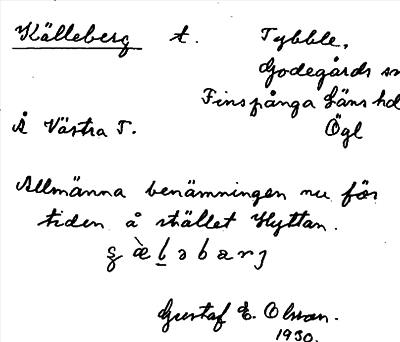 Källeberg t. Tybble,
Godegårds sn
Finspånga läns hd
Å Västra T. Ögl
Allmänna benämningen nu för
tiden å stället Hyttan.
Gustaf E. Olsson.
1930.